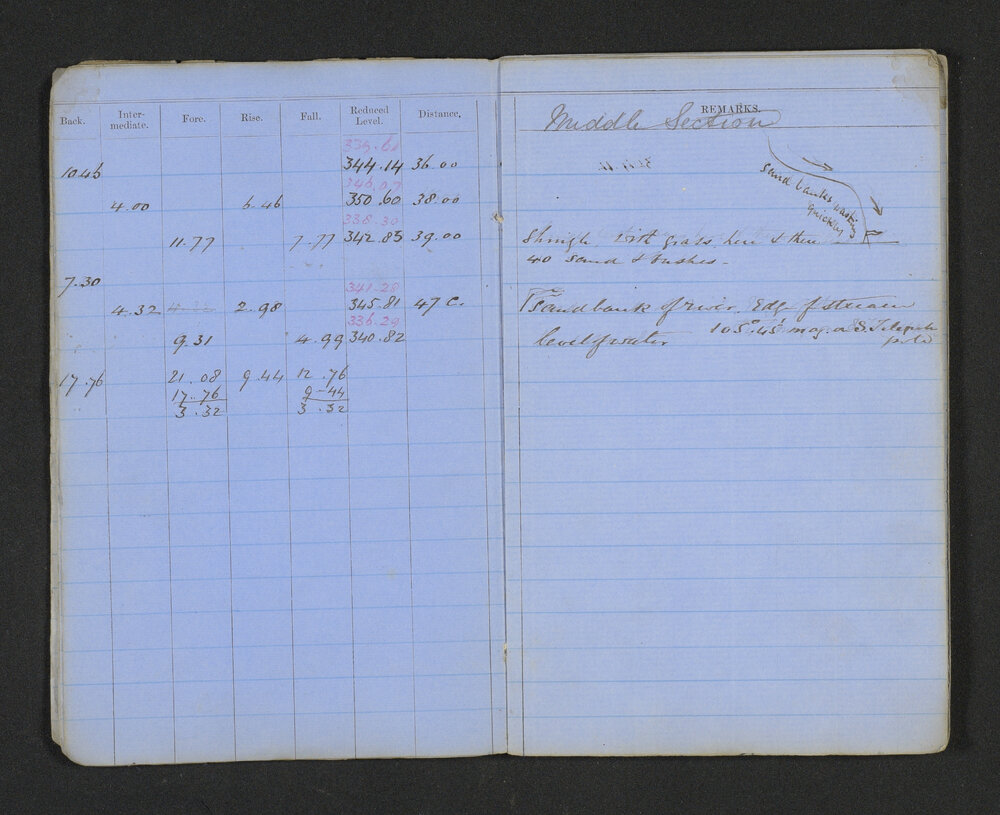 Back. Inter-mediate. Fore. Rise. Fall. Reduced Level. Distance.
339.60
10.46 344.14 36.00
346.07
4.00 6.46 350.60 38.00
338.30
11.77 7.77 342.83 39.00
7.30 341.28
4.32 2.98 345.81 47 C.
336.29
9.31 4.99 340.82
17.76 21.08 9.44 12.76
17.76 9.44
3.32 3.32
REMARKS.
Middle Section
sand banks wasting
quickly
Shingle with grass here & there
40 sand & bushes -
Sandbank of river. Edge of stream
level of water 105° 45' mag. a S. Telegraph
pole